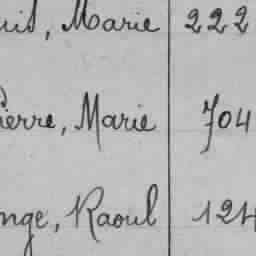 uis, Marie 222
Pierre, Marie 704
nge, Raoul 124